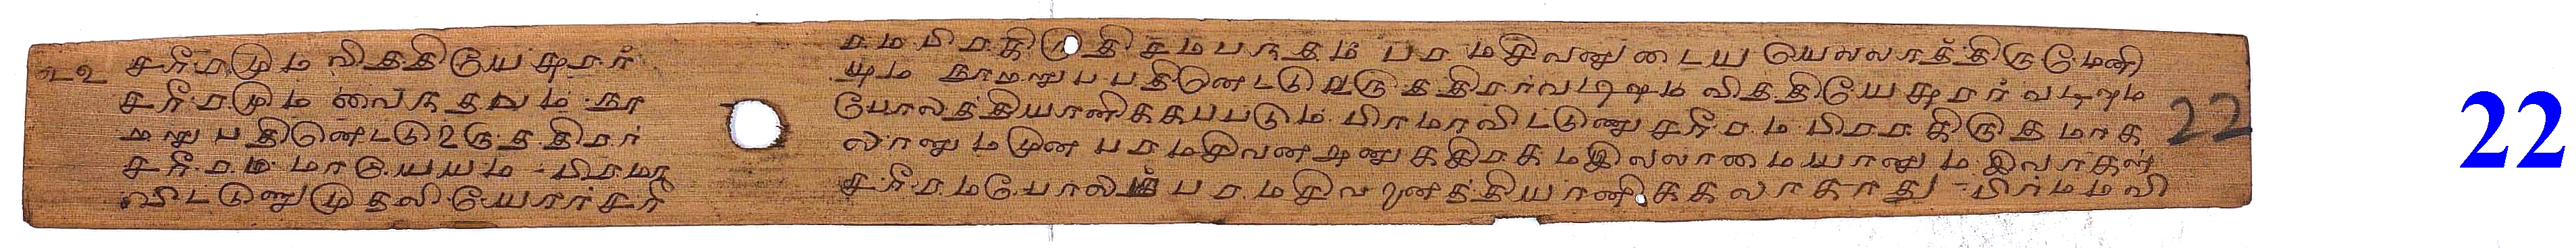 ௨௨ சரீரமும வித்தியேசுரர்
சரீரமும வைந்தவம் நூ
றறு பதினெட்டு உருத்திரர்
சரீரம மாயேயம - பிரமா
விட்டுணு முதலியோர் சரீ
ரம பிரகிருதி சம்பந்தம் பரமசிவனுடைய யெல்லாத்திருமேனி
யும நூறறுபபதினெட்டு உருத்திரர் வடிவும வித்தியேசுரர் வடிவும
போலத்தியானிக்கப்படும் பிரமாவிட்டுணு சரீரம பிரகிருதமாக
லானும முன பரமசிவன அனுக்கிரகம இல்லாமையானும இவர்கள்
சரீரமபோலப் பரமசிவனைத்தியானிக்கலாகாது - பிரமமவி
22
22